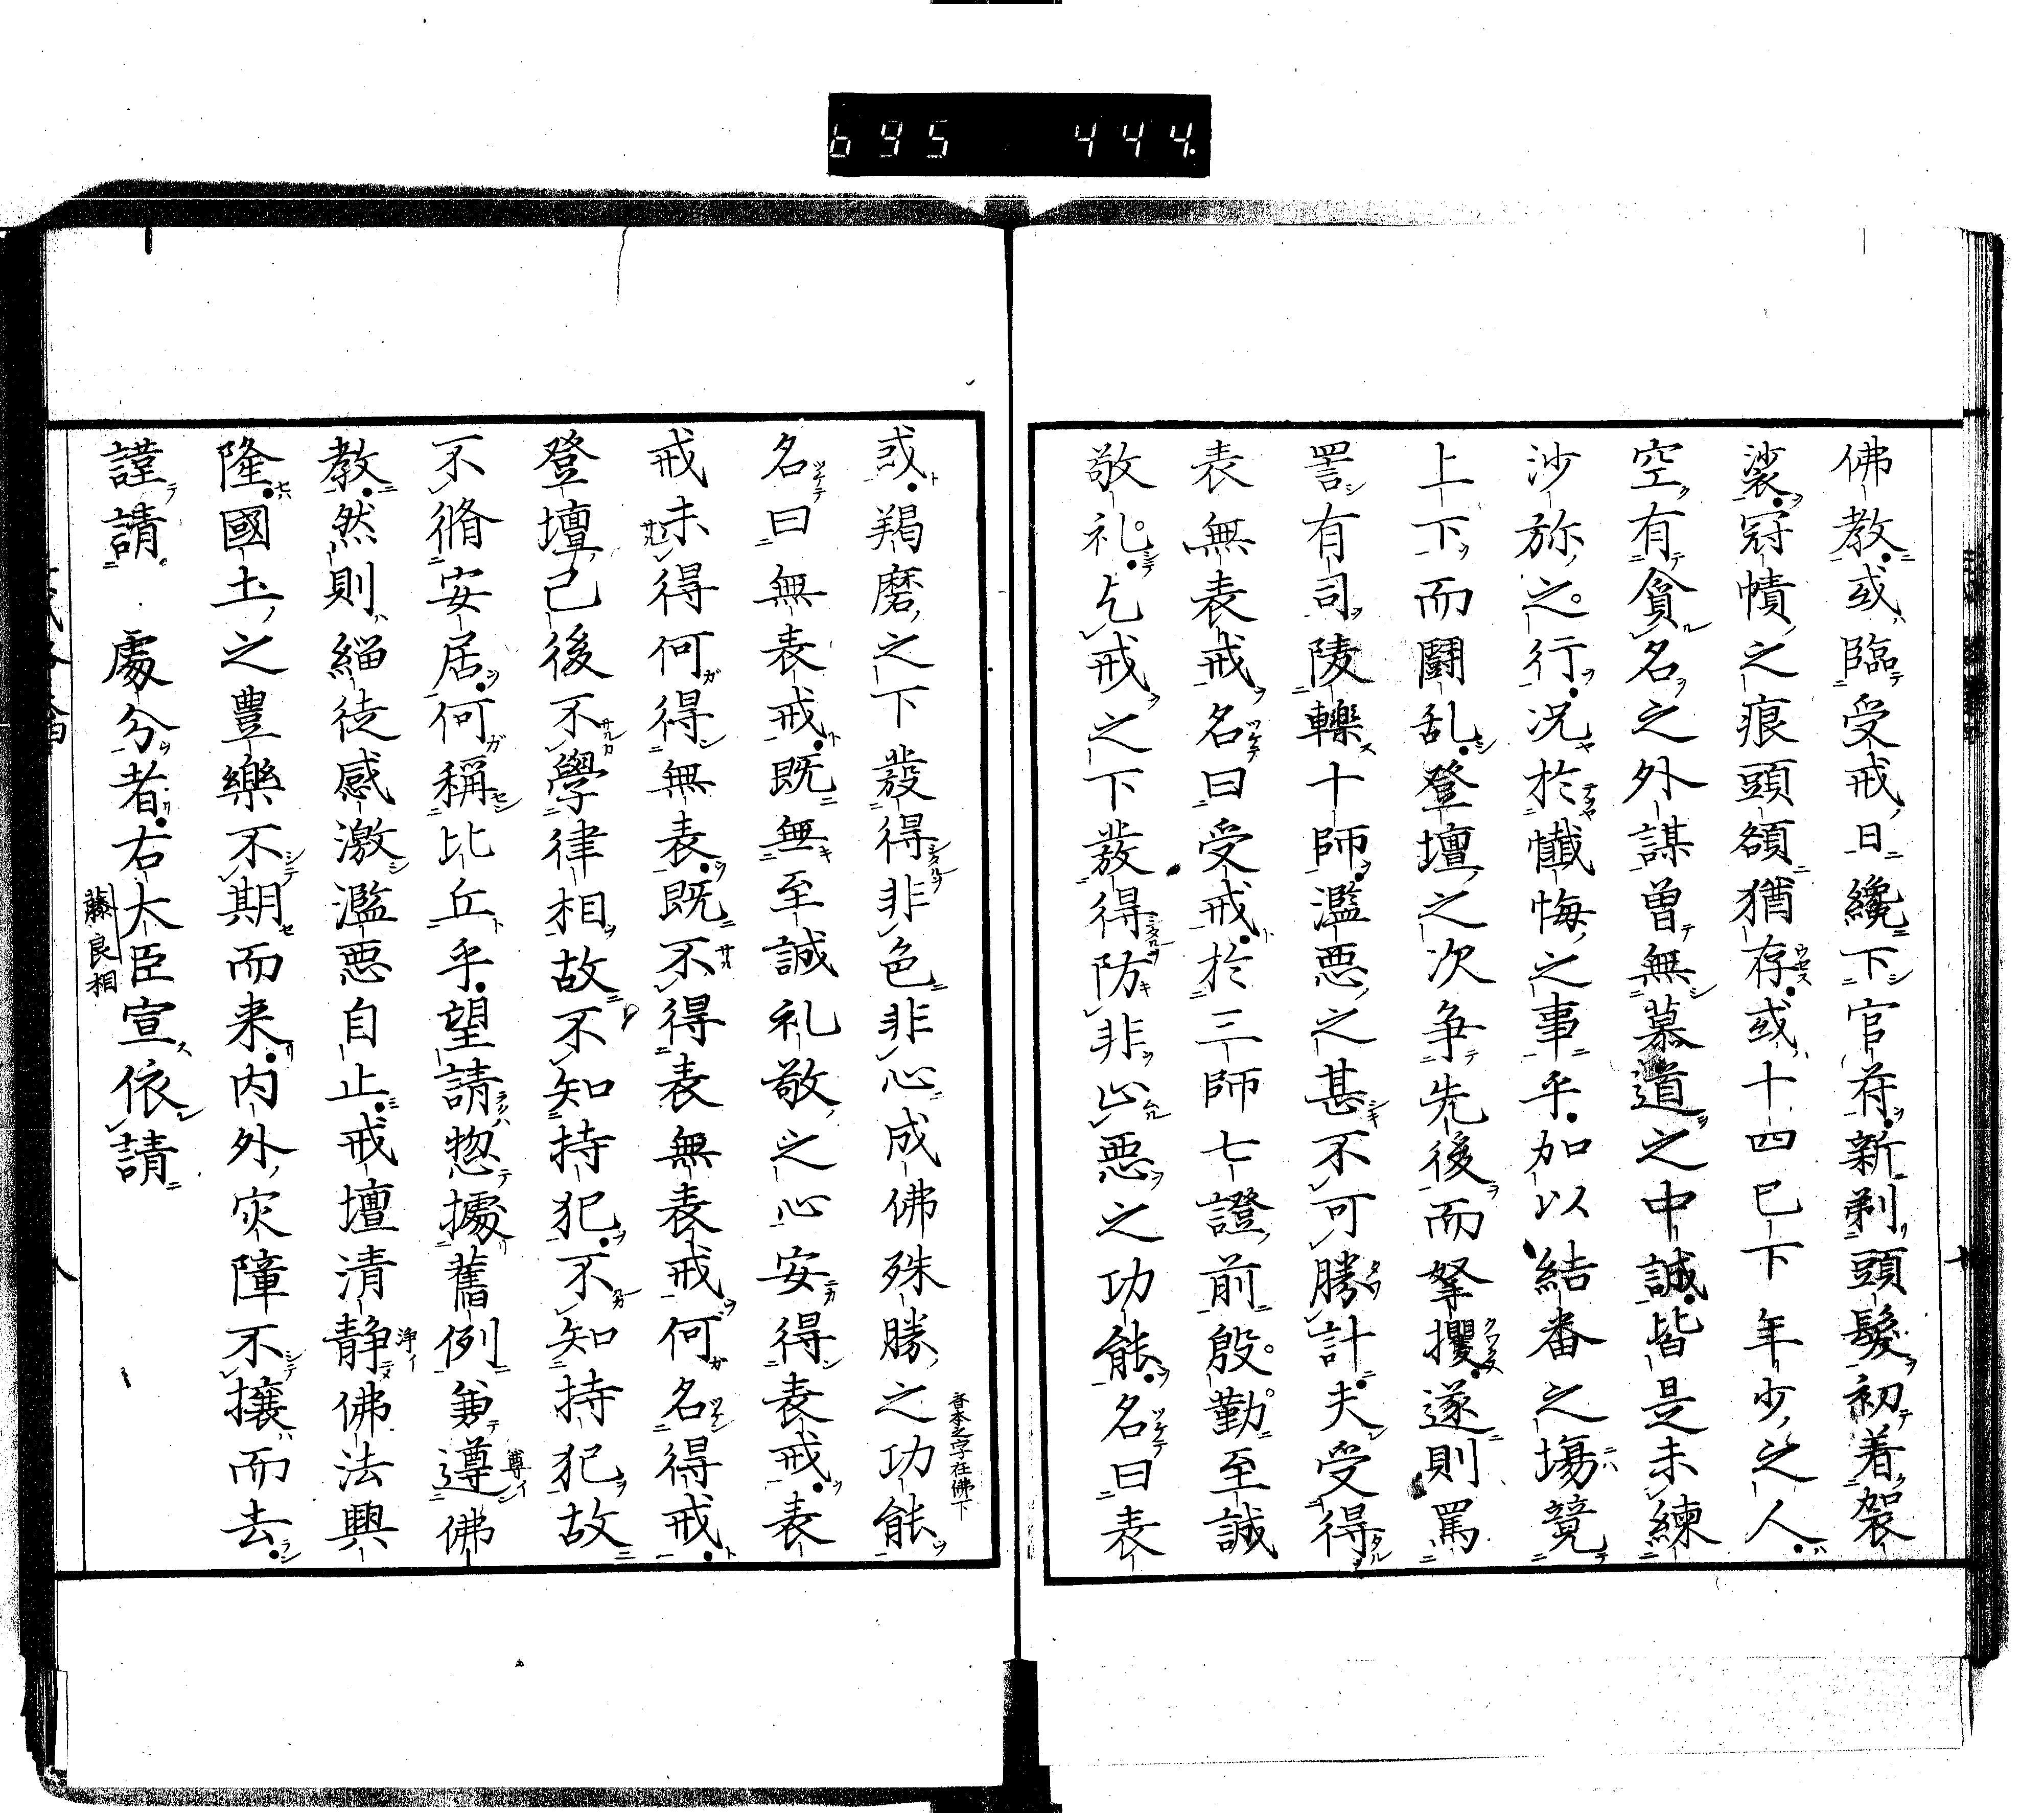 695 444.
佛教或臨受戒日纔下官苻新剃頭髮初着袈
裟冠幘之痕頭額猶存或十四已下年少之人
空有貪名之外謀曽無慕道之中誠皆是未練
沙弥之行况於懺悔之事乎加以結番之場競
上下而闘乱登壇之次争先後而拏攫遂則罵
詈有司陵轢十師濫悪之甚不可勝計夫受得
表無表戒名曰受戒於三師七證前慇勤至誠
敬礼乞戒之下發得防非止悪之功能名曰表
戒羯磨之下發得非色非心成佛殊勝之功能
香本之字在佛下
名曰無表戒既無至誠礼敬之心安得表戒表
戒未得何得無表既不得表無表戒何名得戒
登壇已後不學律相故不知持犯不知持犯故
不脩安居何稱比丘乎望請惣據舊例兼遵佛
尊イ
教然則緇徒感激濫悪自止戒壇清静佛法興
浄イ
隆國土之豊樂不期而来内外灾障不攘而去
謹請 處分者右大臣宣依請
藤良相